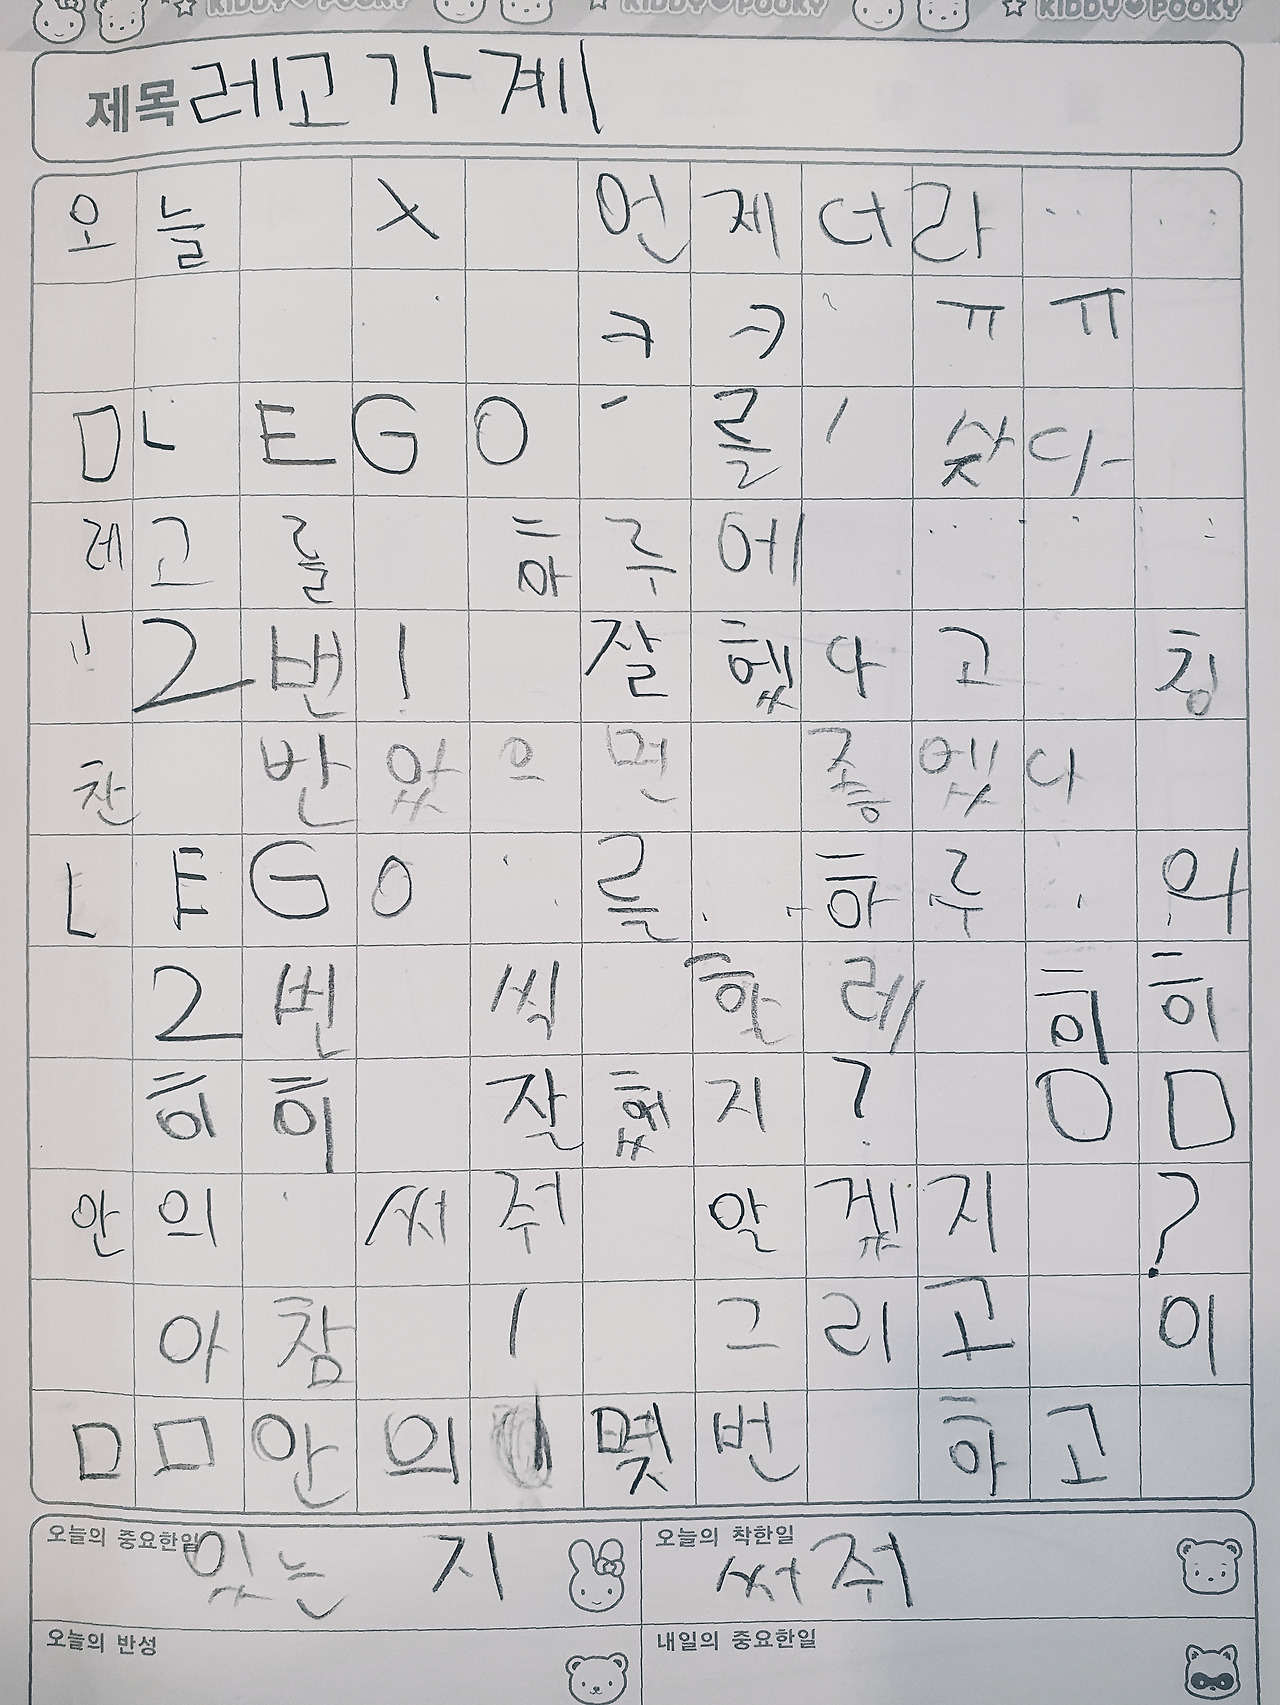 KIDDY♥POOKY ☆ KIDDY♥POOKY ☆ KIDDY♥POOKY
제목 레고 가계
오늘 X 언제더라
ㅋㅋ ㅠㅠ
ㅁL EGO를 샀다
레고를 하루에
2번! 잘헸다고 칭
찬 반았으면 좋엤다
LEGO를 하루
2번 씩 할레 히히
히히 잘헸지? ㅇㅁ
안의 써줘 알겠지 ?
아참 ! 그리고 이
ㅁㅁ안의 몇번 하고
오늘의 중요한일 있는 지 오늘의 착한일 써줘
오늘의 반성 내일의 중요한일